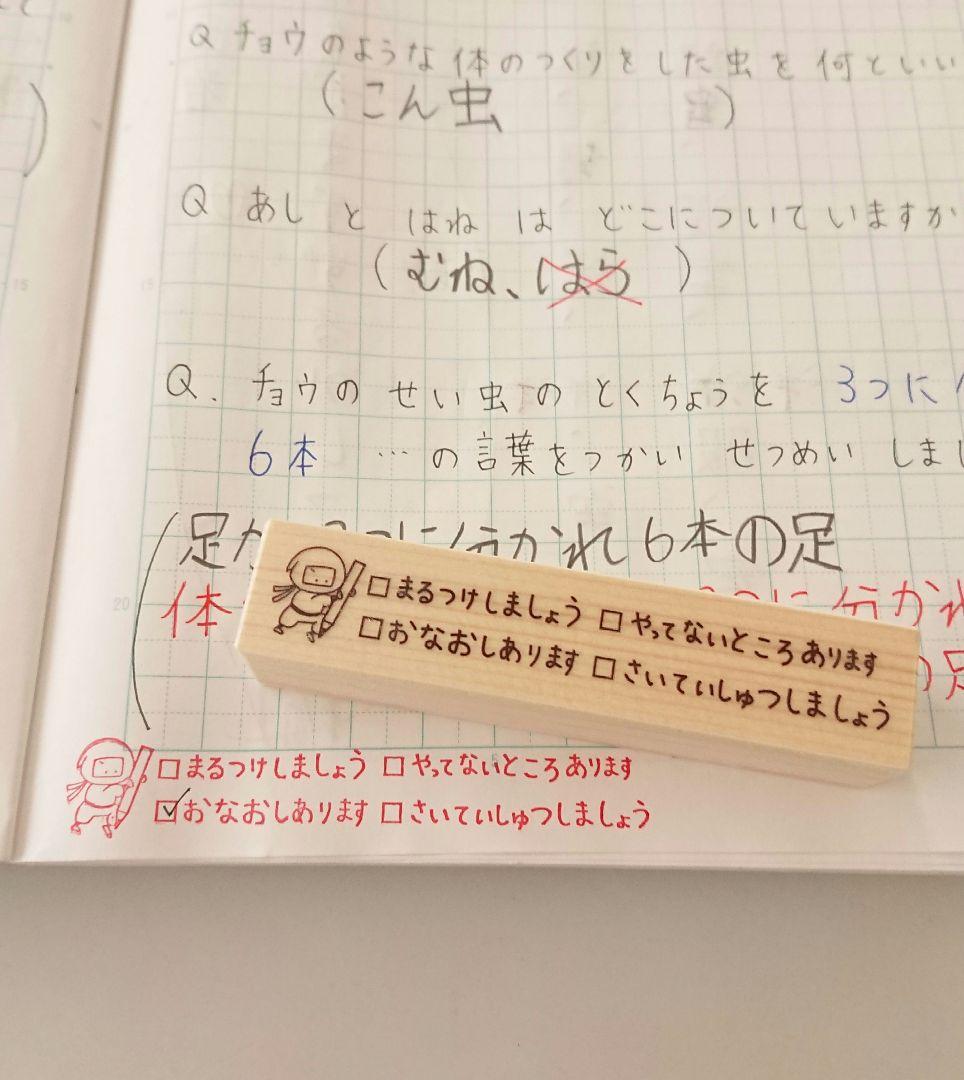 Q チョウのような体のつくりをした虫を何といい
(こん虫 )
Q あし と はね は どこについていますか
(むね、はら)
Q. チョウの せい虫の とくちょうを 3つに
6本 …の言葉をつかい せつめい しまし
(足が つに分かれ6本の足
体 つに分かれ
足
□まるつけしましょう □やってないところあります
□おなおしあります □さいていしゅつしましょう
20
15
15
□まるつけしましょう □やってないところあります
☑おなおしあります □さいていしゅつしましょう